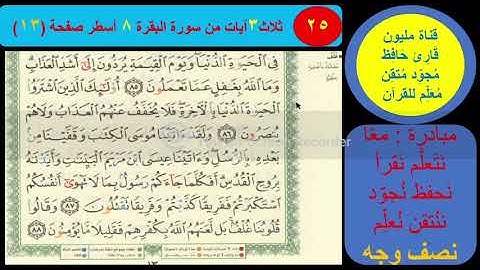 ٢٥
ثلاث ٣ آيات من سورة البقرة ٨ أسطر صفحة (١٣)
قناة مليون
قارئ حافظ
مُجوّد مُتقن
مُعلّم للقرآن
مبادرة : معًا
نتعلّم نقرأ
نحفظ نُجوّد
نتقن نُعلّم
نصف وجه
فِى الْحَيَوٰةِ الدُّنْيَا وَيَوْمَ الْقِيَٰمَةِ يُرَدُّونَ إِلَىٰٓ أَشَدِّ الْعَذَابِ
وَمَا اللَّهُ بِغَٰفِلٍ عَمَّا تَعْمَلُونَ ٨٥ أُو۟لَٰٓئِكَ الَّذِينَ اشْتَرَوُا۟
الْحَيَوٰةَ الدُّنْيَا بِالْءَاخِرَةِ فَلَا يُخَفَّفُ عَنْهُمُ الْعَذَابُ وَلَا هُمْ
يُنصَرُونَ ٨٦ وَلَقَدْ ءَاتَيْنَا مُوسَى الْكِتَٰبَ وَقَفَّيْنَا مِنۢ
بَعْدِهِۦ بِالرُّسُلِ وَءَاتَيْنَا عِيسَى ابْنَ مَرْيَمَ الْبَيِّنَٰتِ وَأَيَّدْنَٰهُ
بِرُوحِ الْقُدُسِ أَفَكُلَّمَا جَآءَكُمْ رَسُولٌۢ بِمَا لَا تَهْوَىٰٓ أَنفُسُكُمُ
اسْتَكْبَرْتُمْ فَفَرِيقًا كَذَّبْتُمْ وَفَرِيقًا تَقْتُلُونَ ٨٧ وَقَالُوا۟
قُلُوبُنَا غُلْفٌۢ بَل لَّعَنَهُمُ اللَّهُ بِكُفْرِهِمْ فَقَلِيلًا مَّا يُؤْمِنُونَ ٨٨
١٣